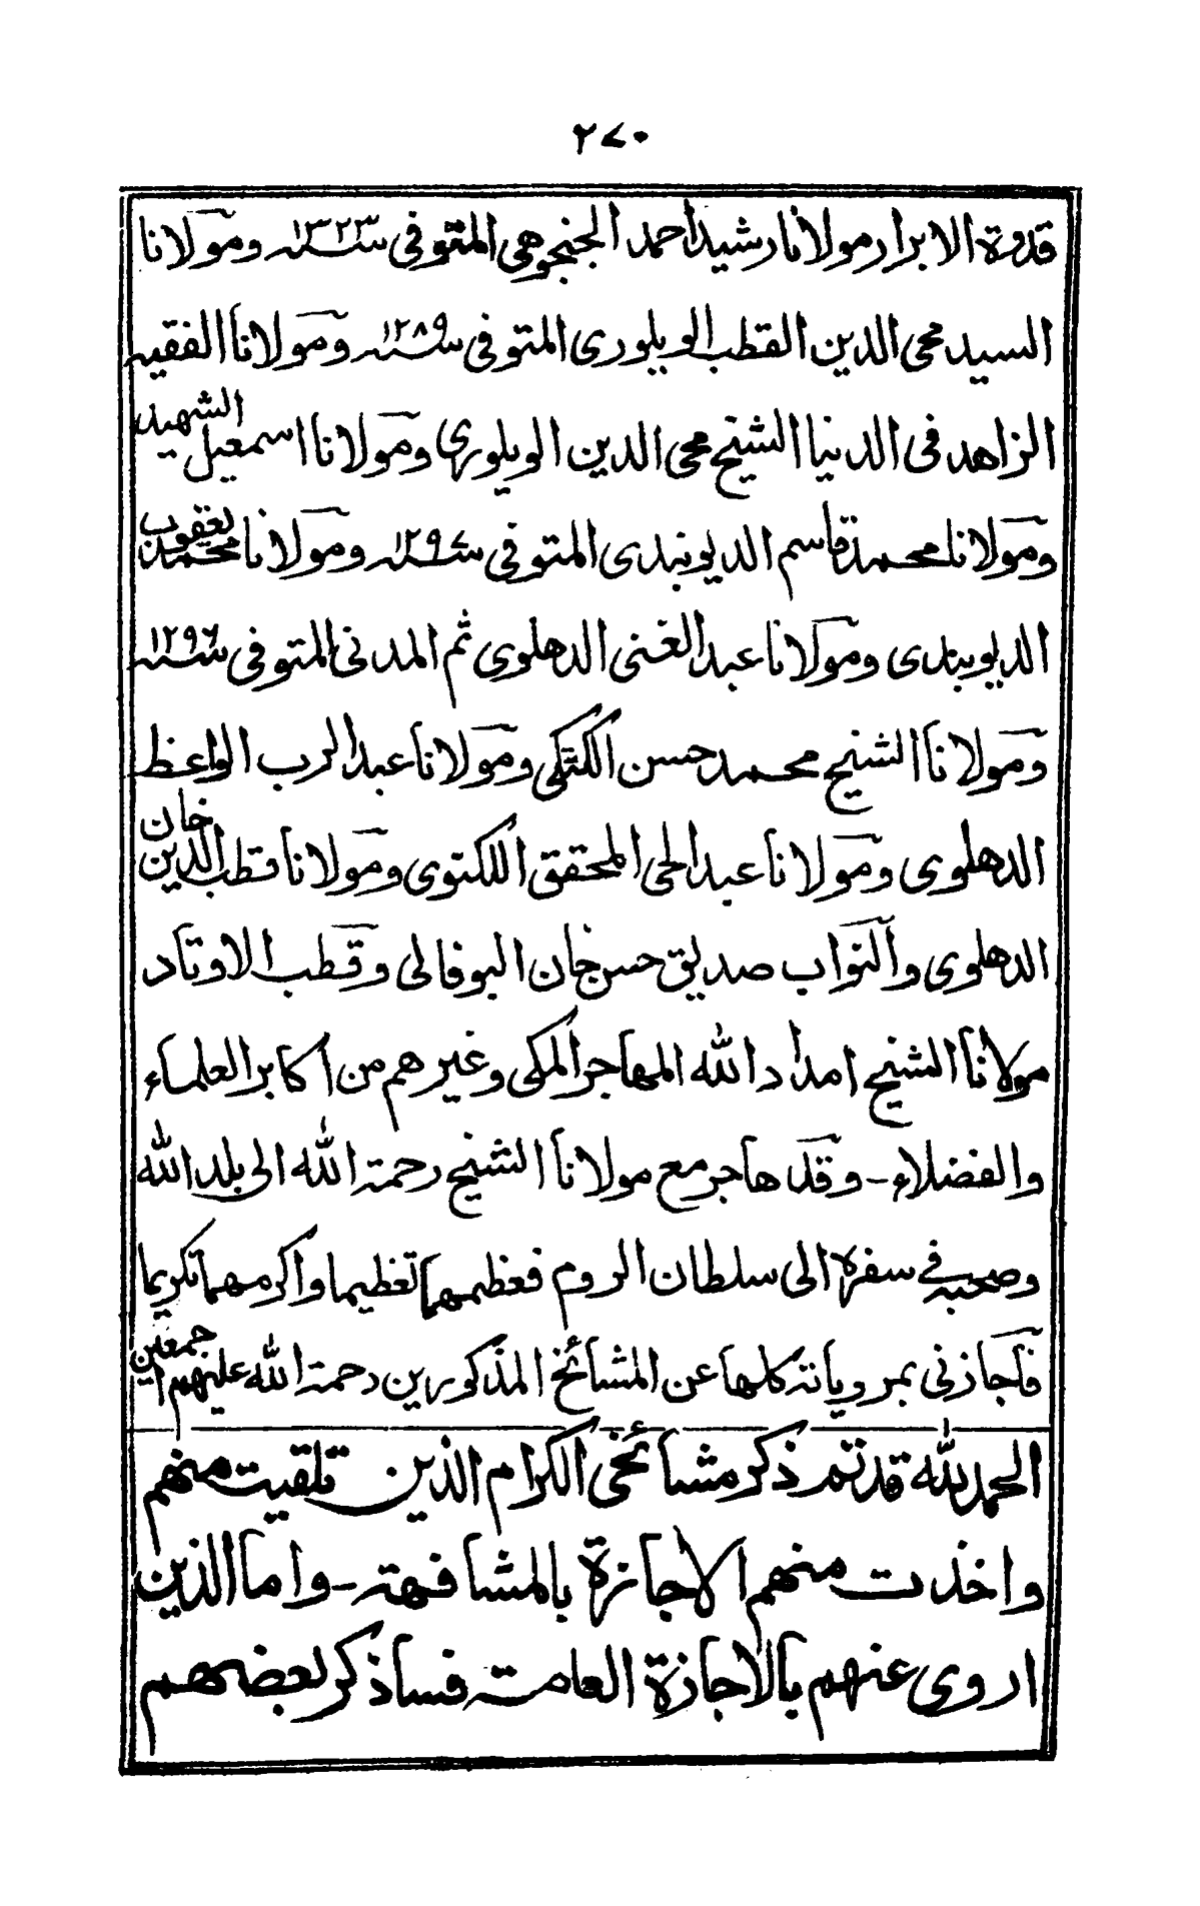 ٢٧٠
قدوة الابرار مولانا رشيد احمد الجنجوهي المتوفى سنه ١٣٢٣ ومولانا
السيد محي الدين القطب الويلورى المتوفى سنه ١٢٨٩ ومولانا الفقيه
الزاهد فى الدنيا الشيخ محي الدين الويلورى ومولانا اسمعيل الشهيد
ومولانا محمد قاسم الديوبندى المتوفى سنه ١٢٩٧ ومولانا محمد يعقوب
الديوبندى ومولانا عبد الغنى الدهلوى ثم المدنى المتوفى سنه ١٢٩٦
ومولانا الشيخ محمد حسن الكتكى ومولانا عبد الرب الواعظ
الدهلوى ومولانا عبد الحى المحقق اللكنوى ومولانا قطب الدين خان
الدهلوى والنواب صديق حسن خان البوفالى وقطب الاوتاد
مولانا الشيخ امداد الله المهاجر المكى وغيرهم من اكابر العلماء
والفضلاء - وقد هاجر مع مولانا الشيخ رحمة الله الى بلد الله
وصحبه في سفره الى سلطان الروم فعظمهما تعظيما واكرمهما تكريما
فاجازنى بمروياته كلها عن المشائخ المذكورين رحمة الله عليهم اجمعين
الحمد لله قد تم ذكر مشائخى الكرام الذين تلقيت منهم
واخذت منهم الاجازة بالمشافهة - واما الذين
اروى عنهم بالاجازة العامة فساذكر بعضهم